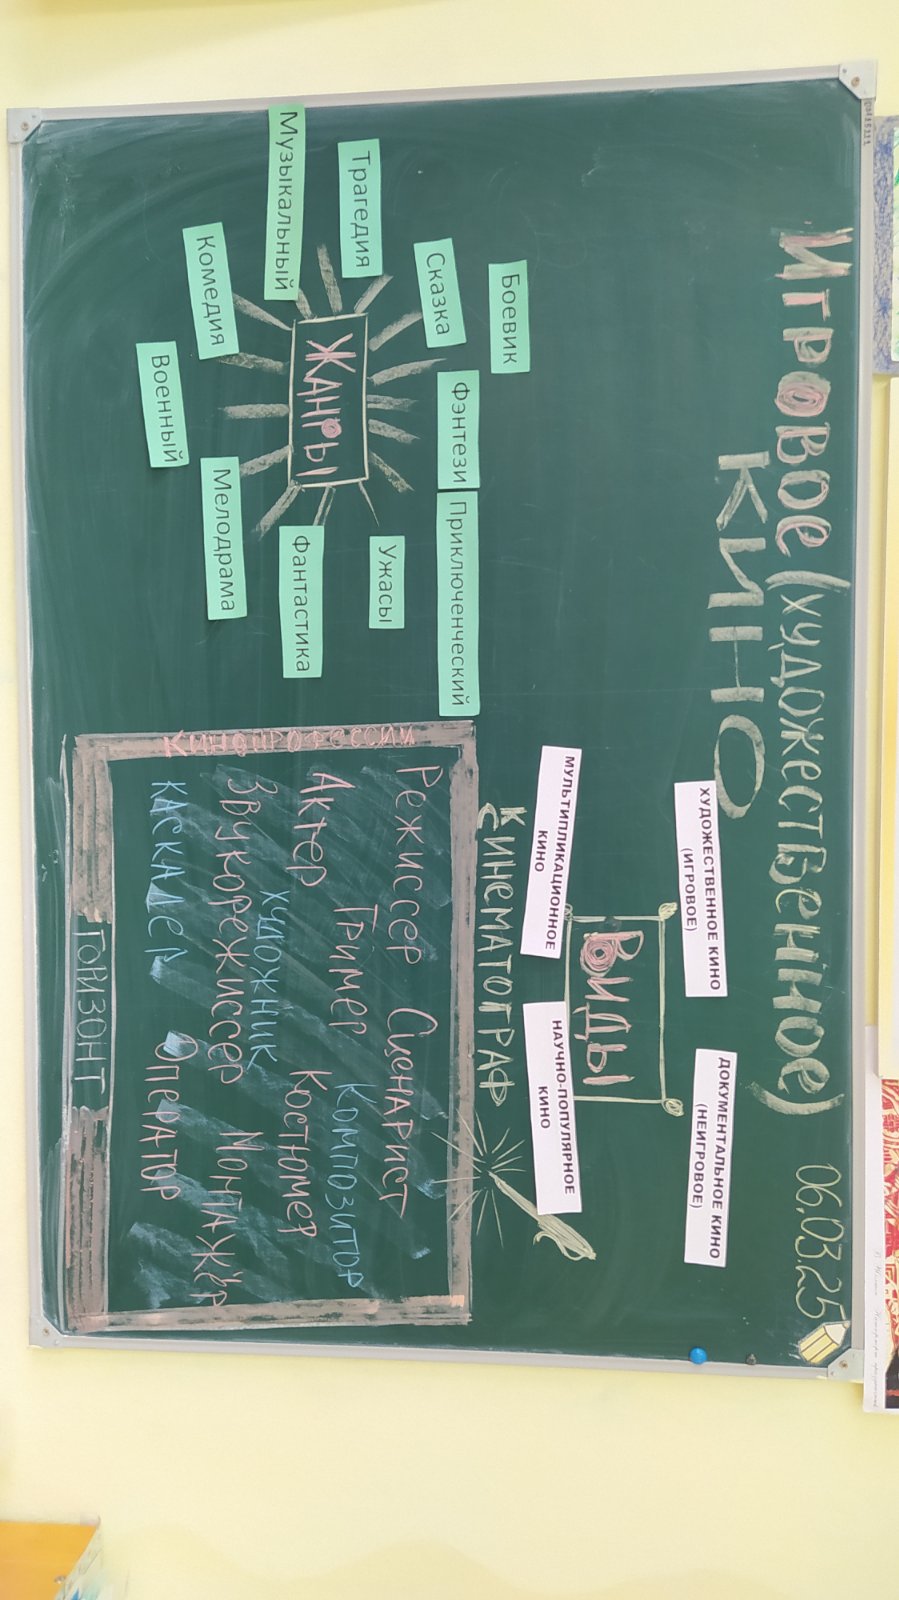 Игровое (художественное)
КИНО
06.03.25
Боевик
Сказка
Фэнтези
Приключенческий
Трагедия
Ужасы
Музыкальный
ЖАНРЫ
Фантастика
Комедия
Мелодрама
Военный
ХУДОЖЕСТВЕННОЕ КИНО
(ИГРОВОЕ)
ДОКУМЕНТАЛЬНОЕ КИНО
(НЕИГРОВОЕ)
ВИДЫ
МУЛЬТИПЛИКАЦИОННОЕ
КИНО
НАУЧНО-ПОПУЛЯРНОЕ
КИНО
КИНЕМАТОГРАФ
КИНОПРОФЕССИИ
Режиссер Сценарист
Гример Композитор
Актер Костюмер
художник
Звукорежиссер Монтажёр
каскадер Оператор
ГОРИЗОНТ